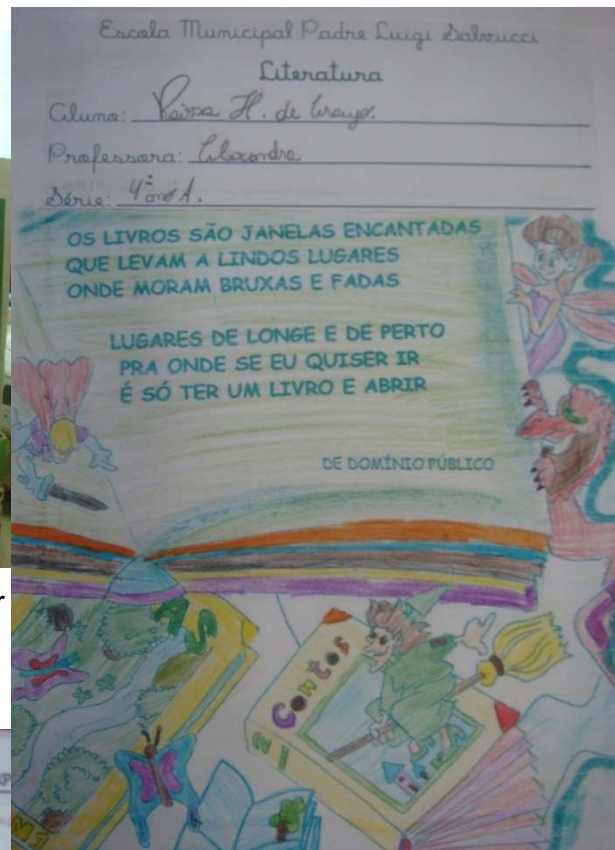 Escola Municipal Padre Luigi Salvucci
Literatura
Aluno: H. de Araujo.
Professora: Alexandra
Série: 4º ano A.
OS LIVROS SÃO JANELAS ENCANTADAS
QUE LEVAM A LINDOS LUGARES
ONDE MORAM BRUXAS E FADAS
LUGARES DE LONGE E DE PERTO
PRA ONDE SE EU QUISER IR
É SÓ TER UM LIVRO E ABRIR
DE DOMÍNIO PÚBLICO
AS
Contos